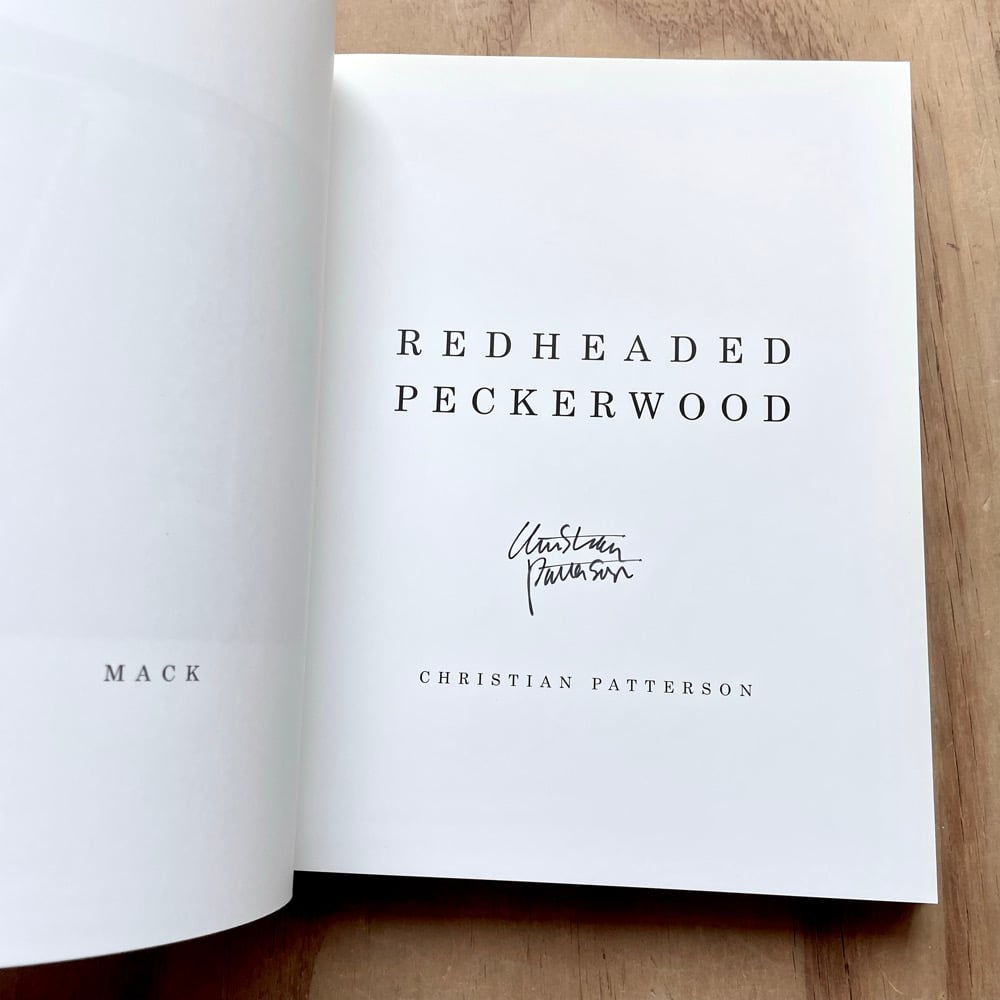 MACK
REDHEADED
PECKERWOOD
Christian
Patterson
CHRISTIAN PATTERSON